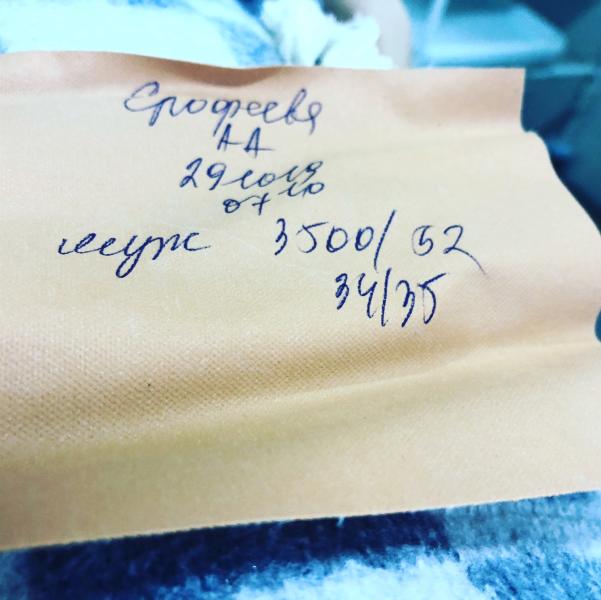 Ерофеева
АА
29 10 19
07 10
муж 3500/52
34/35